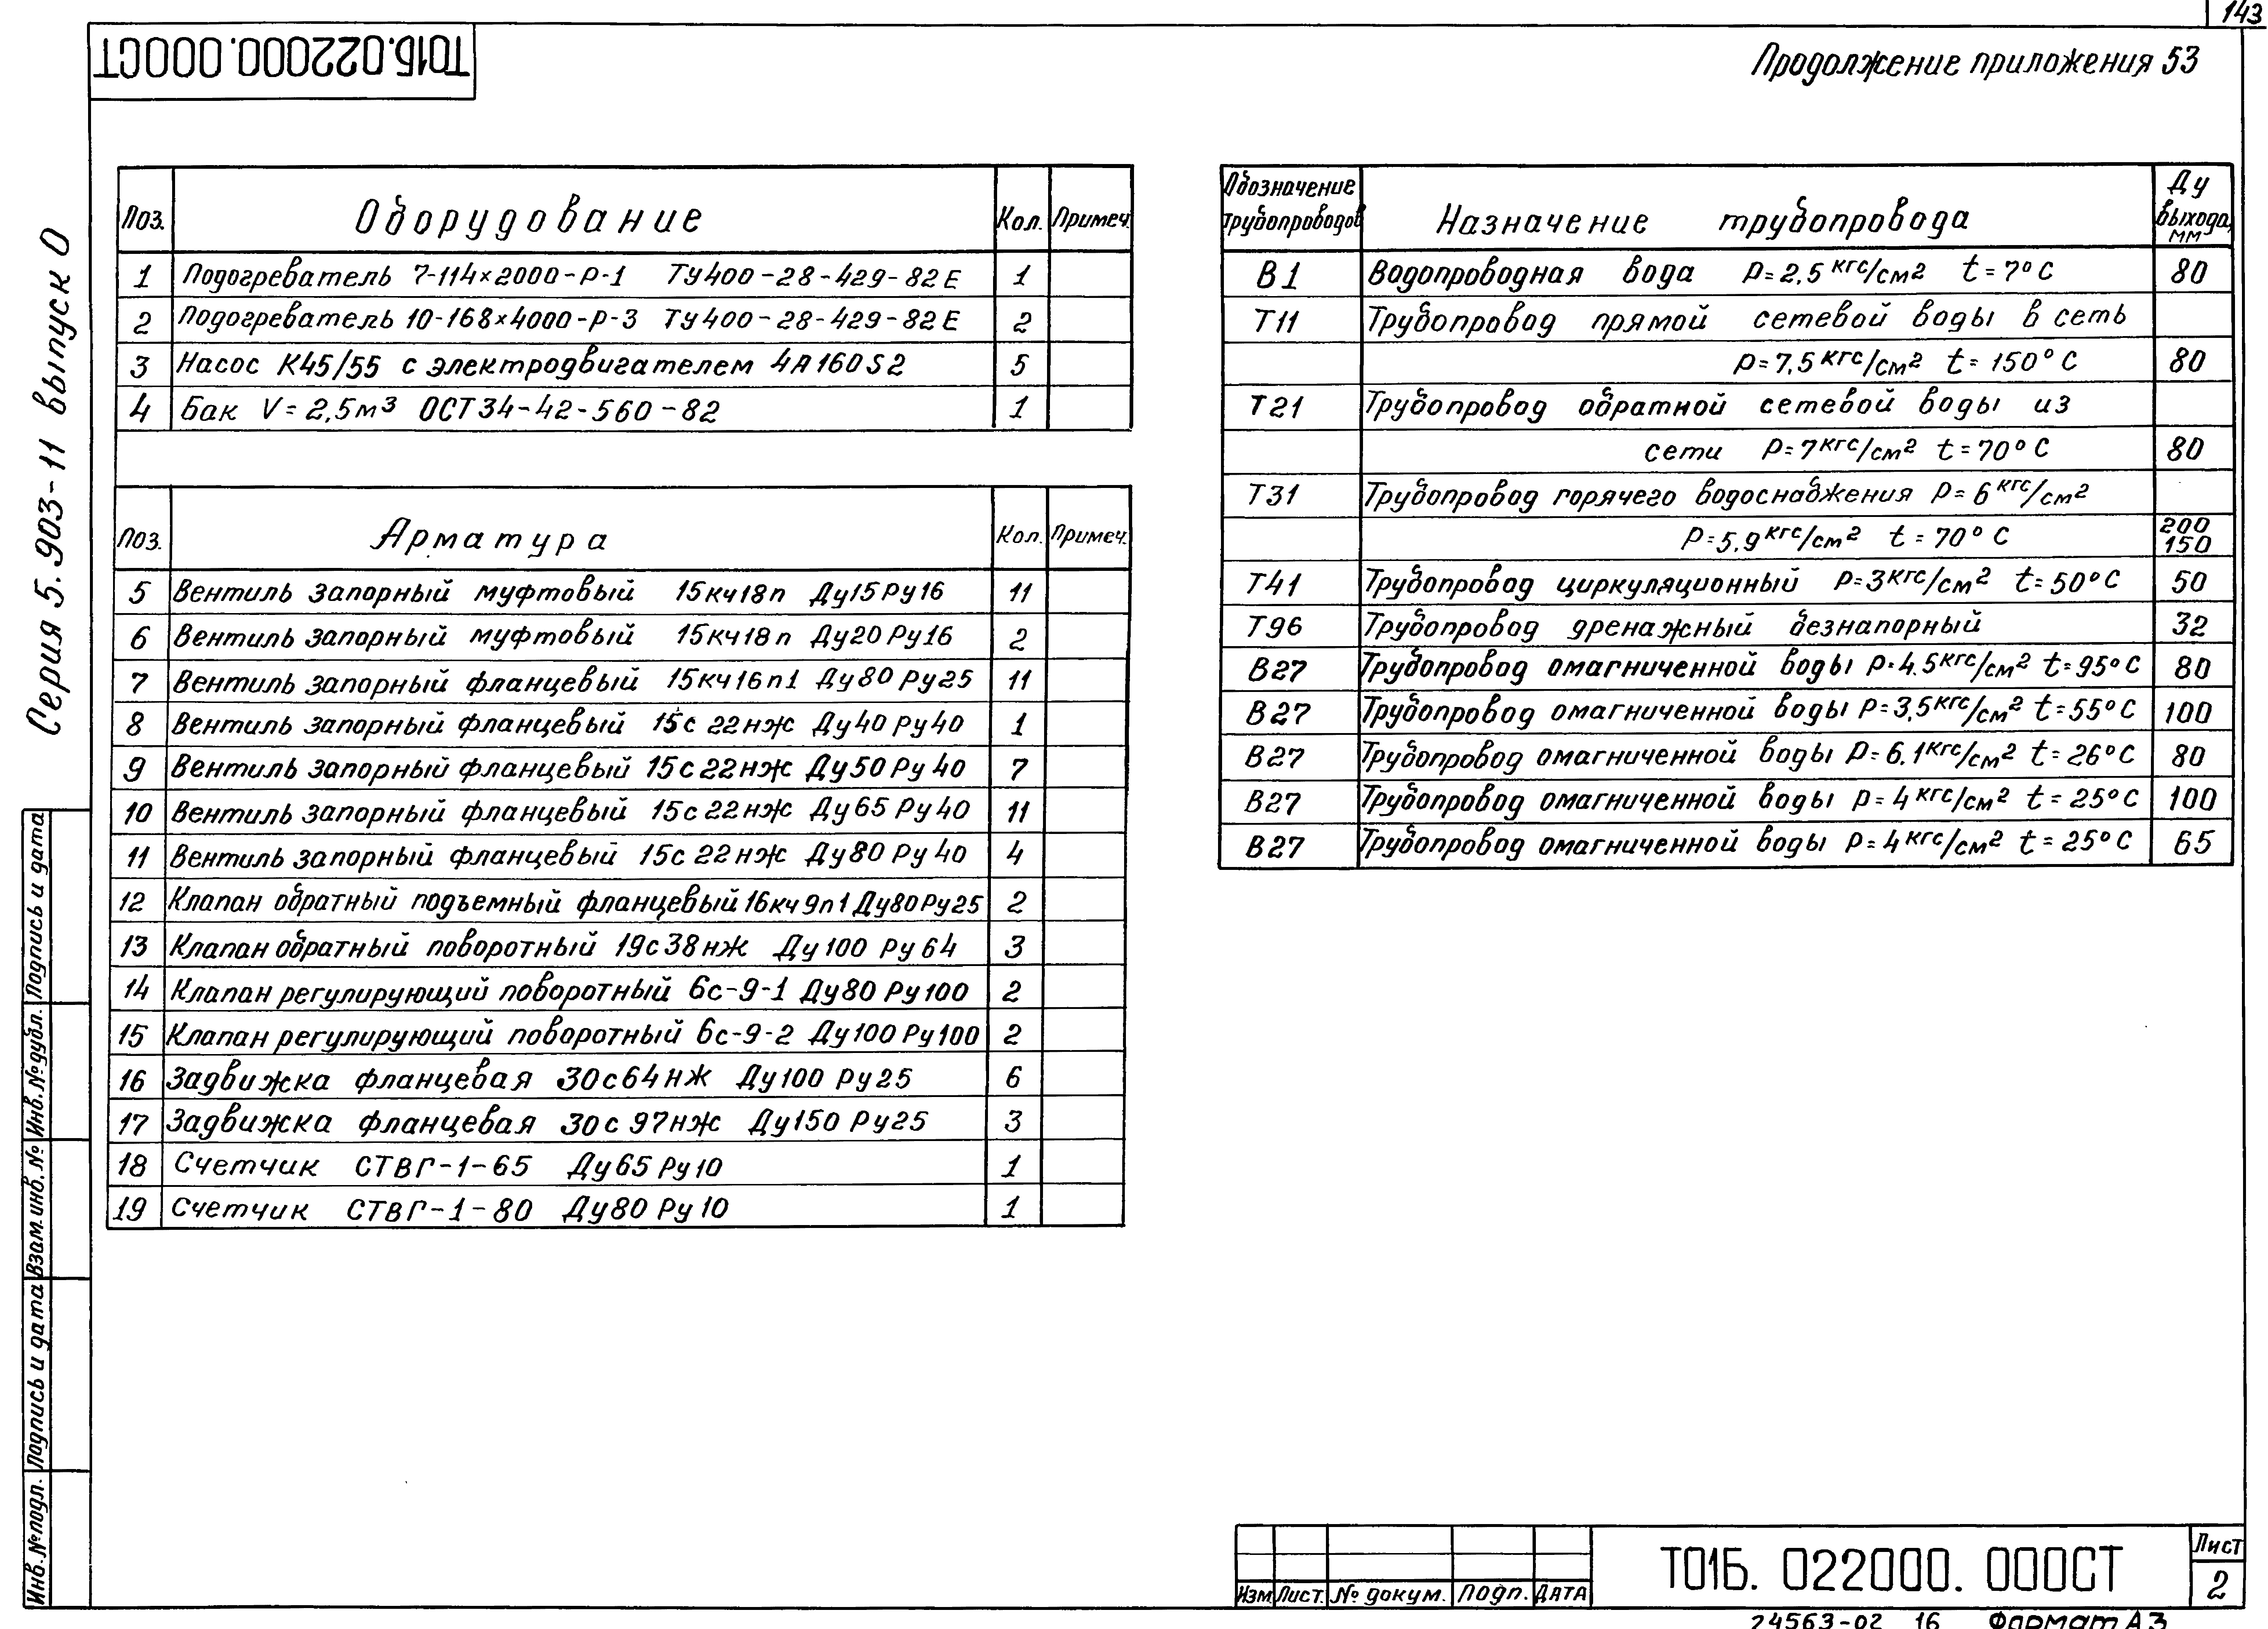 143
Т01Б.022000.000СТ
Продолжение приложения 53
Серия 5.903-11 выпуск 0
Поз. Оборудование Кол. Примеч.
1 Подогреватель 7-114×2000-Р-1 ТУ400-28-429-82Е 1
2 Подогреватель 10-168×4000-Р-3 ТУ400-28-429-82Е 2
3 Насос К45/55 с электродвигателем 4А160S2 5
4 Бак V=2,5м³ ОСТ34-42-560-82 1
Поз. Арматура Кол. Примеч.
5 Вентиль запорный муфтовый 15кч18п Ду15Ру16 11
6 Вентиль запорный муфтовый 15кч18п Ду20Ру16 2
7 Вентиль запорный фланцевый 15кч16п1 Ду80 Ру25 11
8 Вентиль запорный фланцевый 15с22нж Ду40 Ру40 1
9 Вентиль запорный фланцевый 15с22нж Ду50 Ру40 7
10 Вентиль запорный фланцевый 15с22нж Ду65 Ру40 11
11 Вентиль запорный фланцевый 15с22нж Ду80 Ру40 4
12 Клапан обратный подъемный фланцевый 16кч9п1 Ду80Ру25 2
13 Клапан обратный поворотный 19с38нж Ду100 Ру64 3
14 Клапан регулирующий поворотный 6с-9-1 Ду80 Ру100 2
15 Клапан регулирующий поворотный 6с-9-2 Ду100 Ру100 2
16 Задвижка фланцевая 30с64нж Ду100 Ру25 6
17 Задвижка фланцевая 30с97нж Ду150 Ру25 3
18 Счетчик СТВГ-1-65 Ду65 Ру10 1
19 Счетчик СТВГ-1-80 Ду80 Ру10 1
Обозначение трубопроводов Назначение трубопровода Ду выхода, мм
В1 Водопроводная вода р=2,5кгс/см² t=7°С 80
Т11 Трубопровод прямой сетевой воды в сеть
р=7,5кгс/см² t=150°С 80
Т21 Трубопровод обратной сетевой воды из
сети р=7кгс/см² t=70°С 80
Т31 Трубопровод горячего водоснабжения р=6кгс/см²
р=5,9кгс/см² t=70°С 200 150
Т41 Трубопровод циркуляционный р=3кгс/см² t=50°С 50
Т96 Трубопровод дренажный безнапорный 32
В27 Трубопровод омагниченной воды р=4.5кгс/см² t=95°С 80
В27 Трубопровод омагниченной воды р=3,5кгс/см² t=55°С 100
В27 Трубопровод омагниченной воды р=6.1кгс/см² t=26°С 80
В27 Трубопровод омагниченной воды р=4кгс/см² t=25°С 100
В27 Трубопровод омагниченной воды р=4кгс/см² t=25°С 65
Инв.№подл. Подпись и дата Взам.инв.№ Инв.№дубл. Подпись и дата
Изм Лист. № докум. Подп. Дата
Т01Б. 022000. 000СТ
Лист
2
24563-02 16 Формат А3